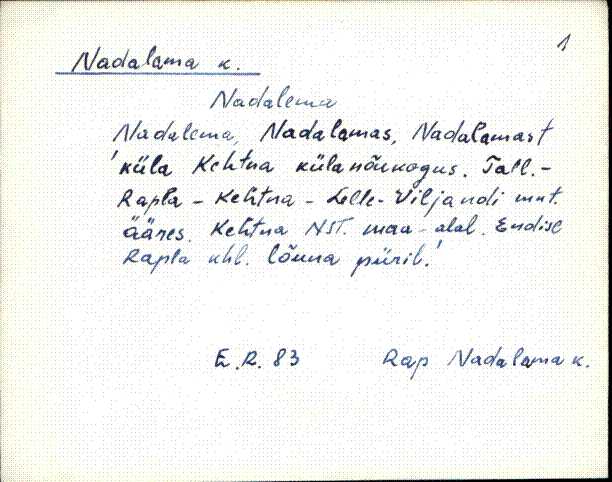 1
Nadalama k.
Nadalema
Nadalema, Nadalamas, Nadalamast
'küla Kehtna külanõukogus. Tall.-
Rapla - Kehtna - Lelle - Viljandi mnt.
ääres. Kehtna NST. maa-alal. Endise
Rapla khl. lõuna piiril.'
E.R. 83 Rap Nadalama k.